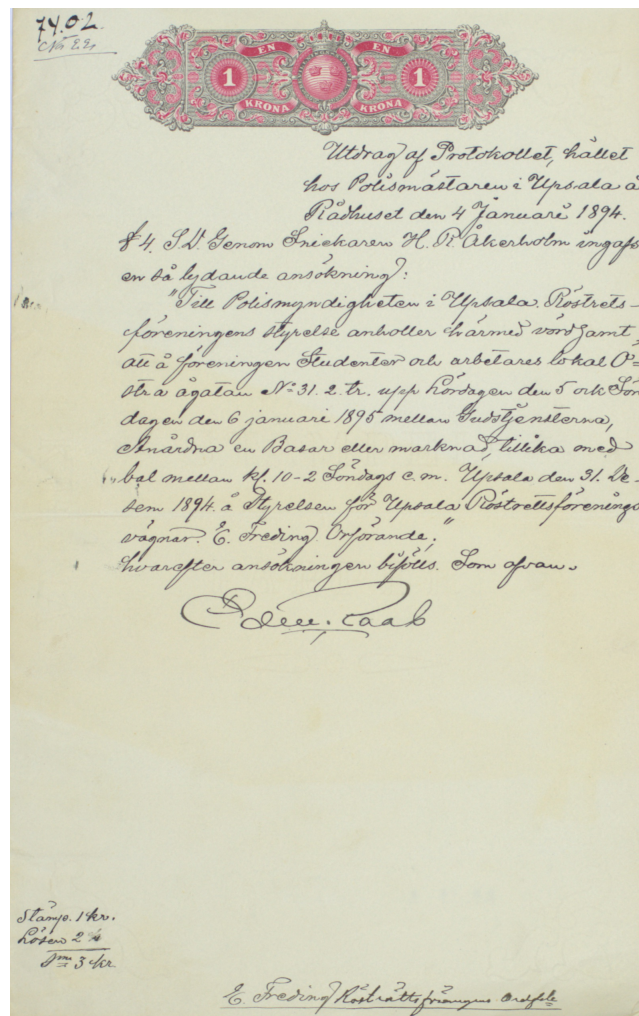 74.02.
EN EN
1 1
KRONA KRONA
Utdrag af Protokollet, hållet
hos Polismästaren i Upsala å
Rådhuset den 4 Januari 1894.
§ 4. S.D. Genom Snickaren H. R. Åkerholm ingafs
en så lydande ansökning:
"Till Polismyndigheten i Upsala. Röstrets-
föreningens styrelse anholler härmed vördsamt,
att å föreningen Studenter och arbetares lokal Ö-
stra ågatan No 31. 2. tr. upp Lördagen den 5 ock Sön
dagen den 6 januari 1895 mellan Gudstjensterna,
Anårdna en Basar eller marknad, tillika med
bal mellan kl. 10-2 Söndags e. m. Upsala den 31. De-
sem 1894. å Styrelsen för Upsala Röstrettsförenings
vägnar. E. Freding Orförande,"
hvarefter ansökningen bifölls. Som ofvan.
Raab
Stämp. 1 kr.
Lösen 2
Sma 3 kr.
E. Freding Rösträttsföreningens Ordf